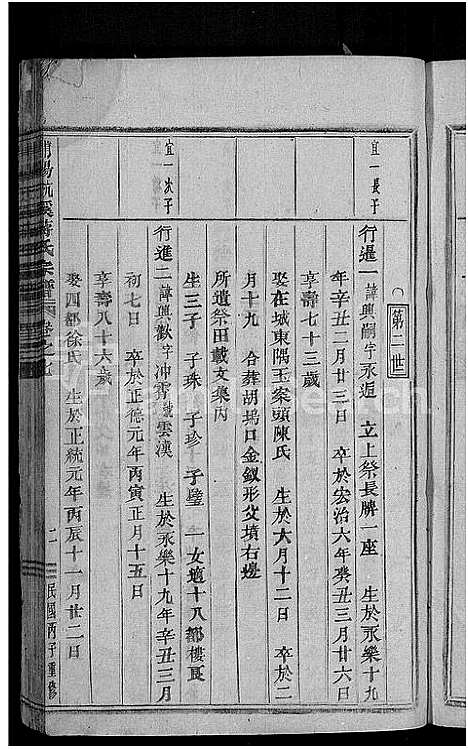 第二世
宜一長子
行暹一 諱興嗣字永逅 立上祭長牌一座 生於永樂十九
年辛丑二月廿三日 卒於宏治六年癸丑三月廿六日
享壽七十三歲
娶在城東隅玉案頭陳氏 生於六月十二日 卒於二
月十九 合葬胡塢口金釵形父墳右邊
所遺祭田載文集內
生三子 子珠 子珍 子璧 一女適十八都樓戛
宜一次子
行進二 諱興歡字沖霄號雲漢 生於永樂十九年辛丑三月
初七日 卒於正德元年丙寅正月十五日
享壽八十六歲
娶四都徐氏 生於正統元年丙辰十一月廿二日
陽 溪蔣氏宗譜 卷之九
二
民國丙子重修